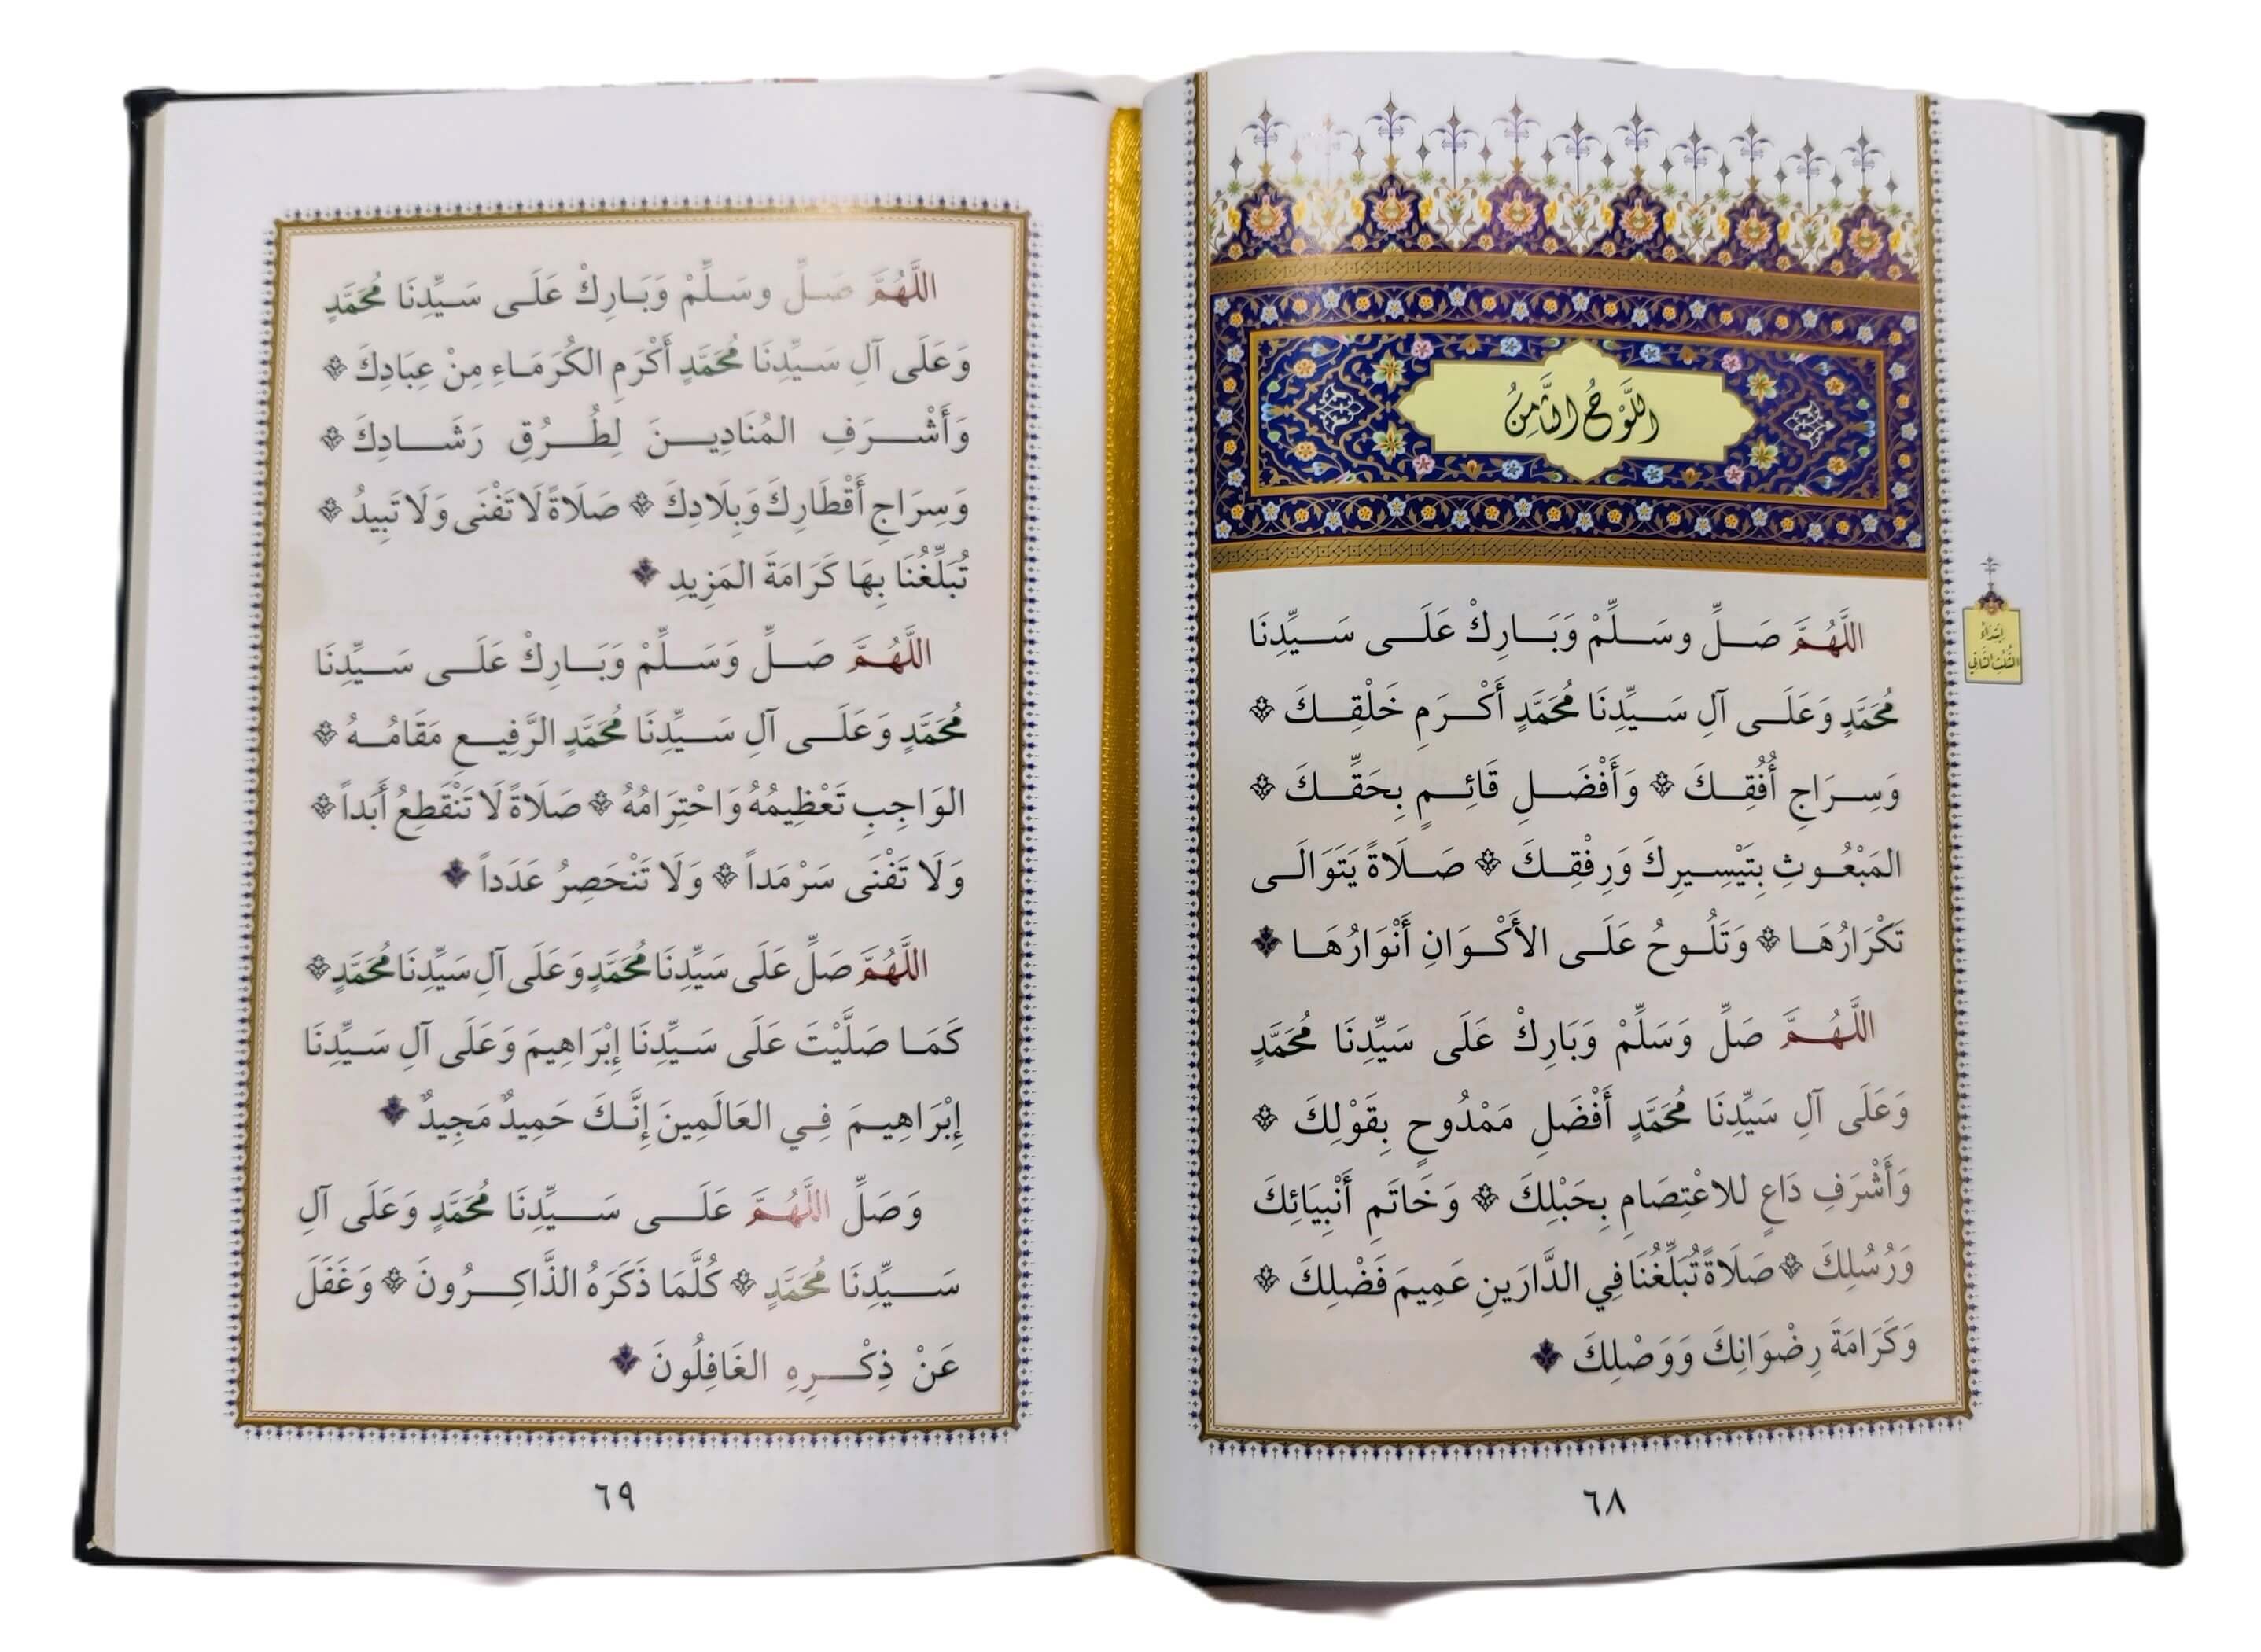 اللَّوْحُ الثَّامِنُ
ابتداء
الثلث الثاني
اللَّهُمَّ صَلِّ وسَلِّمْ وَبَارِكْ عَلَى سَيِّدِنَا
مُحَمَّدٍ وَعَلَى آلِ سَيِّدِنَا مُحَمَّدٍ أَكْرَمِ خَلْقِكَ
وَسِرَاجِ أُفُقِكَ وَأَفْضَلِ قَائِمٍ بِحَقِّكَ
المَبْعُوثِ بِتَيْسِيرِكَ وَرِفْقِكَ صَلَاةً يَتَوَالَى
تَكْرَارُهَا وَتَلُوحُ عَلَى الأَكْوَانِ أَنْوَارُهَا
اللَّهُمَّ صَلِّ وَسَلِّمْ وَبَارِكْ عَلَى سَيِّدِنَا مُحَمَّدٍ
وَعَلَى آلِ سَيِّدِنَا مُحَمَّدٍ أَفْضَلِ مَمْدُوحٍ بِقَوْلِكَ
وَأَشْرَفِ دَاعٍ للاعْتِصَامِ بِحَبْلِكَ وَخَاتَمِ أَنْبِيَائِكَ
وَرُسُلِكَ صَلَاةً تُبَلِّغُنَا فِي الدَّارَينِ عَمِيمَ فَضْلِكَ
وَكَرَامَةَ رِضْوَانِكَ وَوَصْلِكَ
٦٨
اللَّهُمَّ صَلِّ وسَلِّمْ وَبَارِكْ عَلَى سَيِّدِنَا مُحَمَّدٍ
وَعَلَى آلِ سَيِّدِنَا مُحَمَّدٍ أَكْرَمِ الكُرَمَاءِ مِنْ عِبَادِكَ
وَأَشْرَفِ المُنَادِينَ لِطُرُقِ رَشَادِكَ
وَسِرَاجِ أَقْطَارِكَ وَبِلَادِكَ صَلَاةً لَا تَفْنَى وَلَا تَبِيدُ
تُبَلِّغُنَا بِهَا كَرَامَةَ المَزِيدِ
اللَّهُمَّ صَلِّ وَسَلِّمْ وَبَارِكْ عَلَى سَيِّدِنَا
مُحَمَّدٍ وَعَلَى آلِ سَيِّدِنَا مُحَمَّدٍ الرَّفِيعِ مَقَامُهُ
الوَاجِبِ تَعْظِيمُهُ وَاحْتِرَامُهُ صَلَاةً لَا تَنْقَطِعُ أَبَداً
وَلَا تَفْنَى سَرْمَداً وَلَا تَنْحَصِرُ عَدَداً
اللَّهُمَّ صَلِّ عَلَى سَيِّدِنَا مُحَمَّدٍ وَعَلَى آلِ سَيِّدِنَا مُحَمَّدٍ
كَمَا صَلَّيْتَ عَلَى سَيِّدِنَا إِبْرَاهِيمَ وَعَلَى آلِ سَيِّدِنَا
إِبْرَاهِيمَ فِي العَالَمِينَ إِنَّكَ حَمِيدٌ مَجِيدٌ
وَصَلِّ اللَّهُمَّ عَلَى سَيِّدِنَا مُحَمَّدٍ وَعَلَى آلِ
سَيِّدِنَا مُحَمَّدٍ كُلَّمَا ذَكَرَهُ الذَّاكِرُونَ وَغَفَلَ
عَنْ ذِكْرِهِ الغَافِلُونَ
٦٩